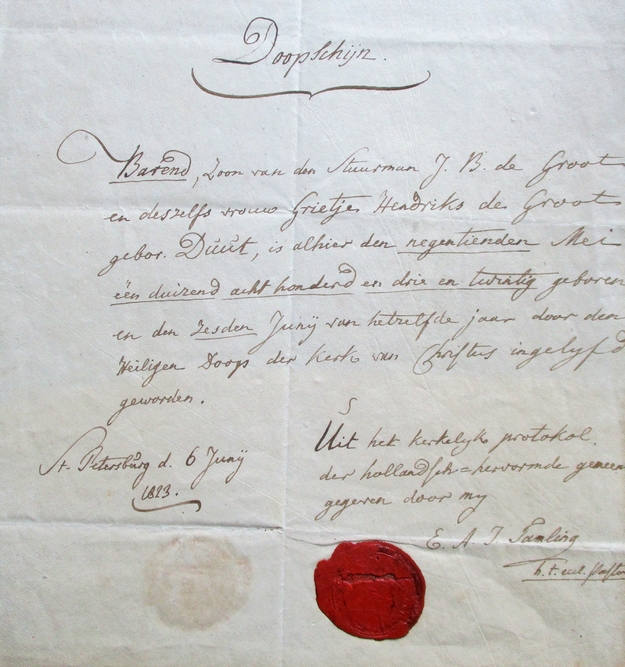 Doopschijn.
Barend, Zoon van den Stuurman J. B. de Groot
en deszelfs vrouw Grietje Hendriks de Groot
gebor. Duut, is alhier den negentienden Mei
een duizend acht honderd en drie en twintig geboren
en den zesden Junij van hetzelfde jaar door den
Heiligen Doop der Kerk van Christus ingelyfd
geworden.
St. Petersburg d. 6 Junij
1823.
Uit het kerkelyk protokol.
der hollandsch=hervormde gemeen
gegeven door my
E. A. J. Tamling
h. t. eccl. Pastor